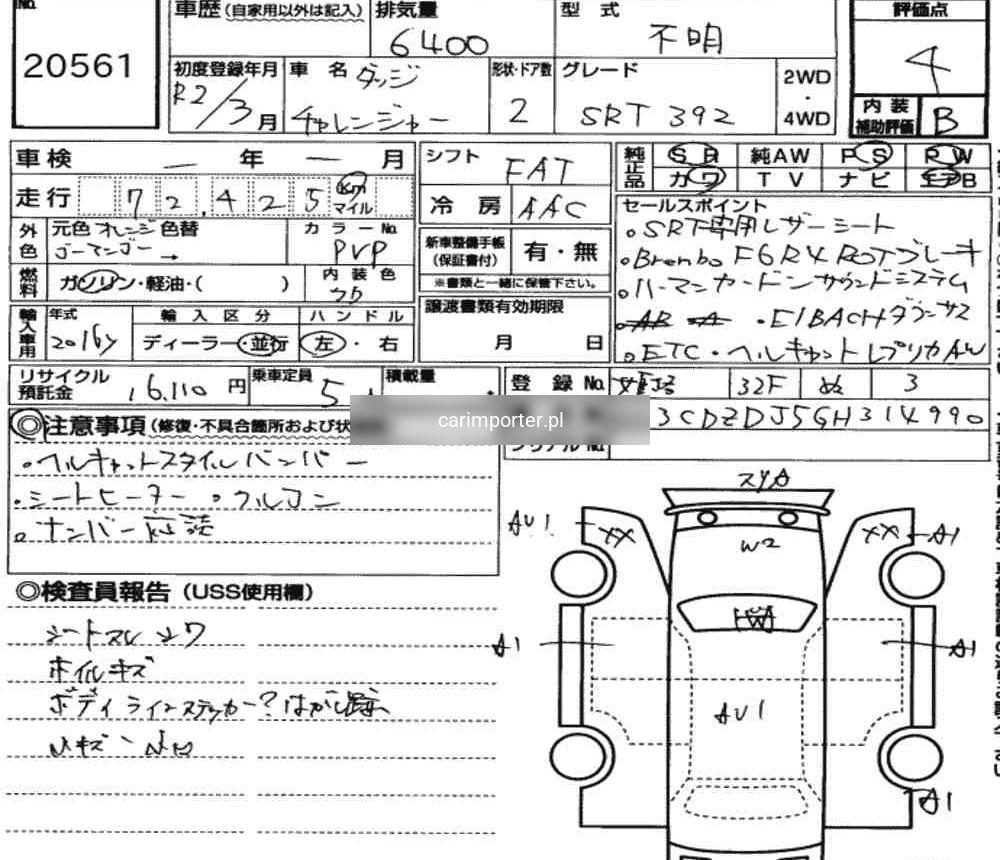 No.
20561
車歴(自家用以外は記入)
排気量 6400
型式 不明
評価点 4
初度登録年月 R2/3月
車名 ダッジ チャレンジャー
形状・ドア数 2
グレード SRT 392
2WD・4WD
内装補助評価 B
車検 ― 年 ― 月
シフト FAT
純正品 SR 純AW PS PW
カワ TV ナビ エアB
走行 72,425 km マイル
冷房 AAC
セールスポイント
外色 元色 オレンジ 色替
ゴーマンゴー →
カラーNo. PVP
新車整備手帳(保証書付) 有・無
※書類と一緒に保管下さい。
。SRT専用レザーシート
。Brembo F6R4 ROTブレーキ
。ハーマンカードンサウンドシステム
・EIBACHダウンサス
。ETC・ヘルキャットレプリカAW
燃料 ガソリン・軽油・( )
内装色
譲渡書類有効期限
月 日
輸入車用 年式 2016y
輸入区分 ディーラー・並行
ハンドル 左・右
リサイクル預託金 16,110円
乗車定員 5人
積載量
登録No. 32F ぬ 3
carimporter.pl
3CDZDJ5GH314990
シリアルNo.
◎注意事項(修復・不具合箇所および状
。ヘルキャットスタイルバンパー
。シートヒーター 。クルコン
。ナンバー
◎検査員報告(USS使用欄)
シートスレ シワ
ホイルキズ
ボディラインステッカー?はがし跡
小キズ 小凹
スリA
AU1 XX
XX A1
W2
A1
A1
AU1
A1